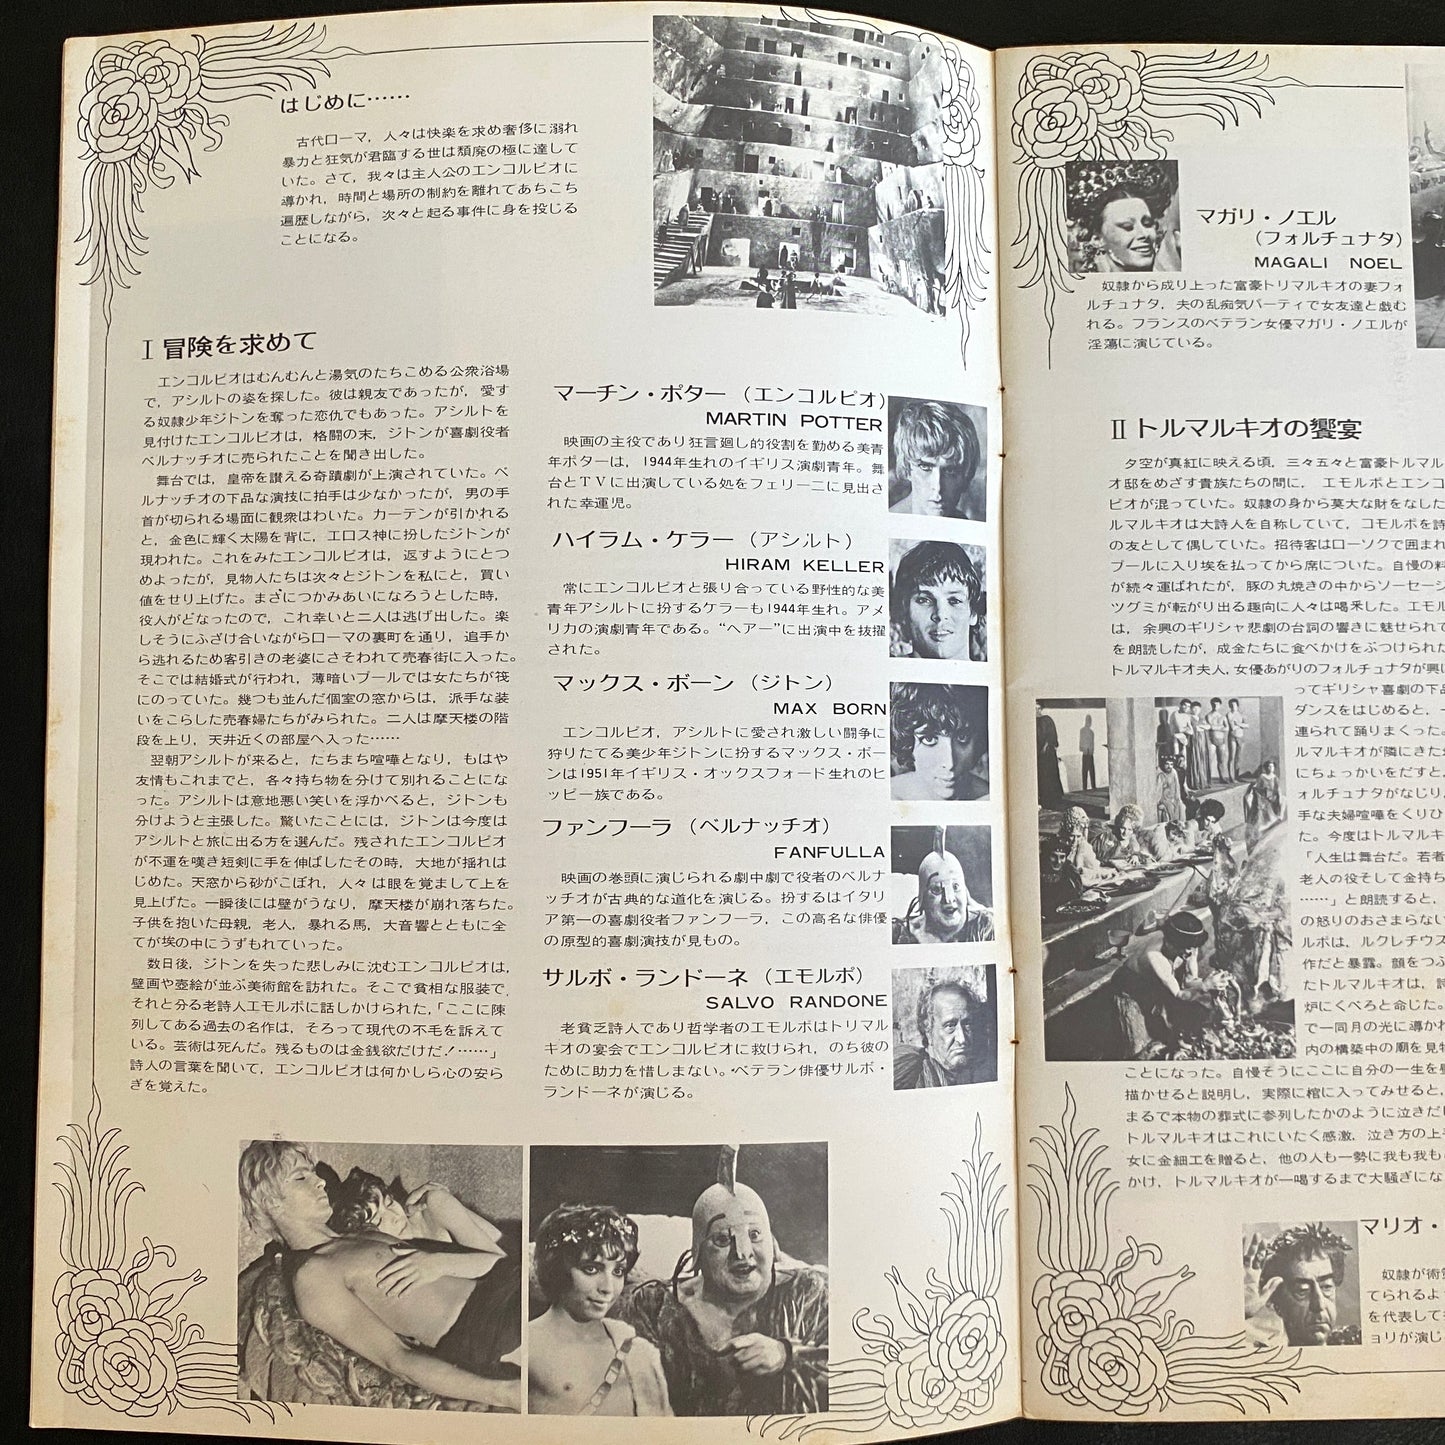 はじめに……
古代ローマ，人々は快楽を求め奢侈に溺れ
暴力と狂気が君臨する世は頽廃の極に達して
いた。さて，我々は主人公のエンコルビオに
導かれ，時間と場所の制約を離れてあちこち
遍歴しながら，次々と起る事件に身を投じる
ことになる。
I 冒険を求めて
エンコルビオはむんむんと湯気のたちこめる公衆浴場
で，アシルトの姿を探した。彼は親友であったが，愛す
る奴隷少年ジトンを奪った恋仇でもあった。アシルトを
見付けたエンコルビオは，格闘の末，ジトンが喜劇役者
ベルナッチオに売られたことを聞き出した。
舞台では，皇帝を讃える奇蹟劇が上演されていた。ベ
ルナッチオの下品な演技に拍手は少なかったが，男の手
首が切られる場面に観衆はわいた。カーテンが引かれる
と，金色に輝く太陽を背に，エロス神に扮したジトンが
現われた。これをみたエンコルビオは，返すようにとつ
めよったが，見物人たちは次々とジトンを私にと，買い
値をせり上げた。まさにつかみあいになろうとした時，
役人がどなったので，これ幸いと二人は逃げ出した。楽
しそうにふざけ合いながらローマの裏町を通り，追手か
ら逃れるため客引きの老婆にさそわれて売春街に入った。
そこでは結婚式が行われ，薄暗いプールでは女たちが筏
にのっていた。幾つも並んだ個室の窓からは，派手な装
いをこらした売春婦たちがみられた。二人は摩天楼の階
段を上り，天井近くの部屋へ入った……
翌朝アシルトが来ると，たちまち喧嘩となり，もはや
友情もこれまでと，各々持ち物を分けて別れることにな
った。アシルトは意地悪い笑いを浮かべると，ジトンも
分けようと主張した。驚いたことには，ジトンは今度は
アシルトと旅に出る方を選んだ。残されたエンコルビオ
が不運を嘆き短剣に手を伸ばしたその時，大地が揺れは
じめた。天窓から砂がこぼれ，人々は眼を覚まして上を
見上げた。一瞬後には壁がうなり，摩天楼が崩れ落ちた。
子供を抱いた母親，老人，暴れる馬，大音響とともに全
てが埃の中にうずもれていった。
数日後，ジトンを失った悲しみに沈むエンコルビオは，
壁画や壺絵が並ぶ美術館を訪れた。そこで貧相な服装で，
それと分る老詩人エモルボに話しかけられた，「ここに陳
列してある過去の名作は，そろって現代の不毛を訴えて
いる。芸術は死んだ。残るものは金銭欲だけだ！……」
詩人の言葉を聞いて，エンコルビオは何かしら心の安ら
ぎを覚えた。
マーチン・ポター（エンコルビオ）
MARTIN POTTER
映画の主役であり狂言廻し的役割を勤める美青
年ポターは，1944年生れのイギリス演劇青年。舞
台とTVに出演している処をフェリーニに見出さ
れた幸運児。
ハイラム・ケラー（アシルト）
HIRAM KELLER
常にエンコルビオと張り合っている野性的な美
青年アシルトに扮するケラーも1944年生れ。アメ
リカの演劇青年である。“ヘアー”に出演中を抜擢
された。
マックス・ボーン（ジトン）
MAX BORN
エンコルビオ，アシルトに愛され激しい闘争に
狩りたてる美少年ジトンに扮するマックス・ボー
ンは1951年イギリス・オックスフォード生れのヒ
ッピー族である。
ファンフーラ（ベルナッチオ）
FANFULLA
映画の巻頭に演じられる劇中劇で役者のベルナ
ッチオが古典的な道化を演じる。扮するはイタリ
ア第一の喜劇役者ファンフーラ，この高名な俳優
の原型的喜劇演技が見もの。
サルボ・ランドーネ（エモルボ）
SALVO RANDONE
老貧乏詩人であり哲学者のエモルボはトリマル
キオの宴会でエンコルビオに救けられ，のち彼の
ために助力を惜しまない。ベテラン俳優サルボ・
ランドーネが演じる。
マガリ・ノエル
（フォルチュナタ）
MAGALI NOEL
奴隷から成り上った富豪トリマルキオの妻フォ
ルチュナタ，夫の乱痴気パーティで女友達と戯む
れる。フランスのベテラン女優マガリ・ノエルが
淫蕩に演じている。
II トルマルキオの饗宴
夕空が真紅に映える頃，三々五々と富豪トルマル
オ邸をめざす貴族たちの間に，エモルボとエンコ
ビオが混っていた。奴隷の身から莫大な財をなした
ルマルキオは大詩人を自称していて，コモルボを詩
の友として偶していた。招待客はローソクで囲まれ
プールに入り埃を払ってから席についた。自慢の料
が続々運ばれたが，豚の丸焼きの中からソーセージ
ツグミが転がり出る趣向に人々は喝釆した。エモル
は，余興のギリシャ悲劇の台詞の響きに魅せられて
を朗読したが，成金たちに食べかけをぶつけられた
トルマルキオ夫人，女優あがりのフォルチュナタが興に
ってギリシャ喜劇の下品
ダンスをはじめると，
連られて踊りまくった。
ルマルキオが隣にきた
にちょっかいをだすと，
ォルチュナタがなじり，
手な夫婦喧嘩をくりひ
た。今度はトルマルキ
「人生は舞台だ。若者
老人の役そして金持ち
……」と朗読すると，
の怒りのおさまらない
ルボは，ルクレチウス
作だと暴露。顔をつぶ
たトルマルキオは，詩
炉にくべろと命じた。
で一同月の光に導かれ
内の構築中の廟を見物
ことになった。自慢そうにここに自分の一生を
描かせると説明し，実際に棺に入ってみせると，
まるで本物の葬式に参列したかのように泣きだし
トルマルキオはこれにいたく感激，泣き方の上手
女に金細工を贈ると，他の人も一勢に我も我も
かけ，トルマルキオが一喝するまで大騒ぎにな
マリオ・
奴隷が術
てられるよ
を代表して
ョリが演じ